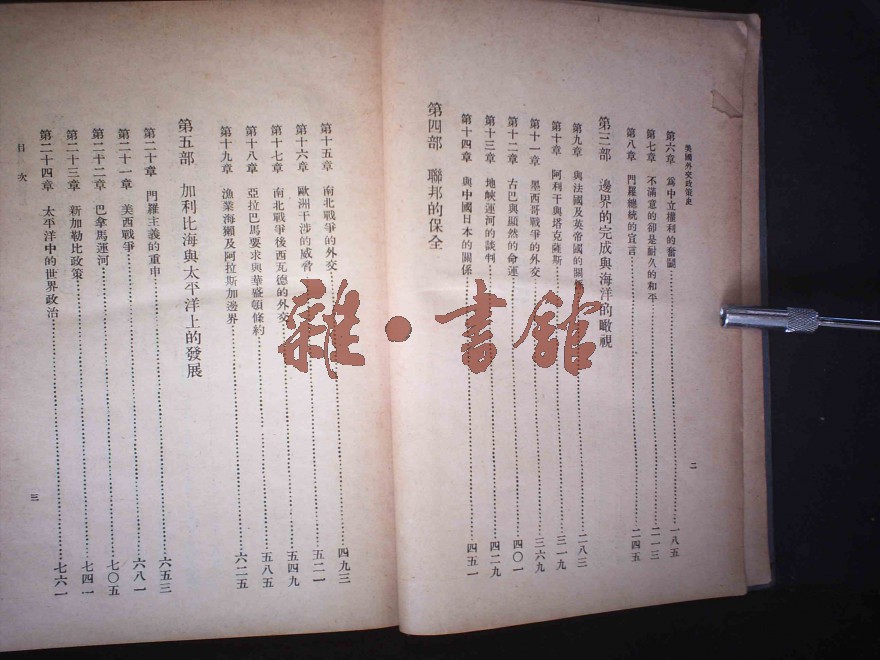 美國外交政策史
第六章　為中立權利的奮鬭……一八五
第七章　不滿意的卻是耐久的和平……二一三
第八章　門羅總統的宣言……二四五
第三部　邊界的完成與海洋的瞰視
第九章　與法國及英帝國的關係……二八三
第十章　阿利干與塔克薩斯……三一九
第十一章　墨西哥戰爭的外交……三六九
第十二章　古巴與顯然的命運……四〇一
第十三章　地峽運河的談判……四二九
第十四章　與中國日本的關係……四五一
第四部　聯邦的保全
二
第十五章　南北戰爭的外交……四九三
第十六章　歐洲干涉的威脅……五二一
第十七章　南北戰爭後西瓦德的外交……五四九
第十八章　亞拉巴馬要求與華盛頓條約……五八五
第十九章　漁業海獺及阿拉斯加邊界……六二五
第五部　加利比海與太平洋上的發展
第二十章　門羅主義的重申……六五三
第二十一章　美西戰爭……六八一
第二十二章　巴拿馬運河……七〇五
第二十三章　新加勒比政策……七四一
第二十四章　太平洋中的世界政治……七六一
目次
三
雜·書館